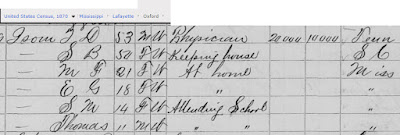 United States Census, 1870 Mississippi Lafayette Oxford
Isom T D 53 M W Physician 20000 10000 Tenn
— S B 50 F W Keeping house S C
— M F 21 F W At home Miss
— E G 18 F W " "
— S M 14 F W Attending School "
— Thomas 11 M W " " "